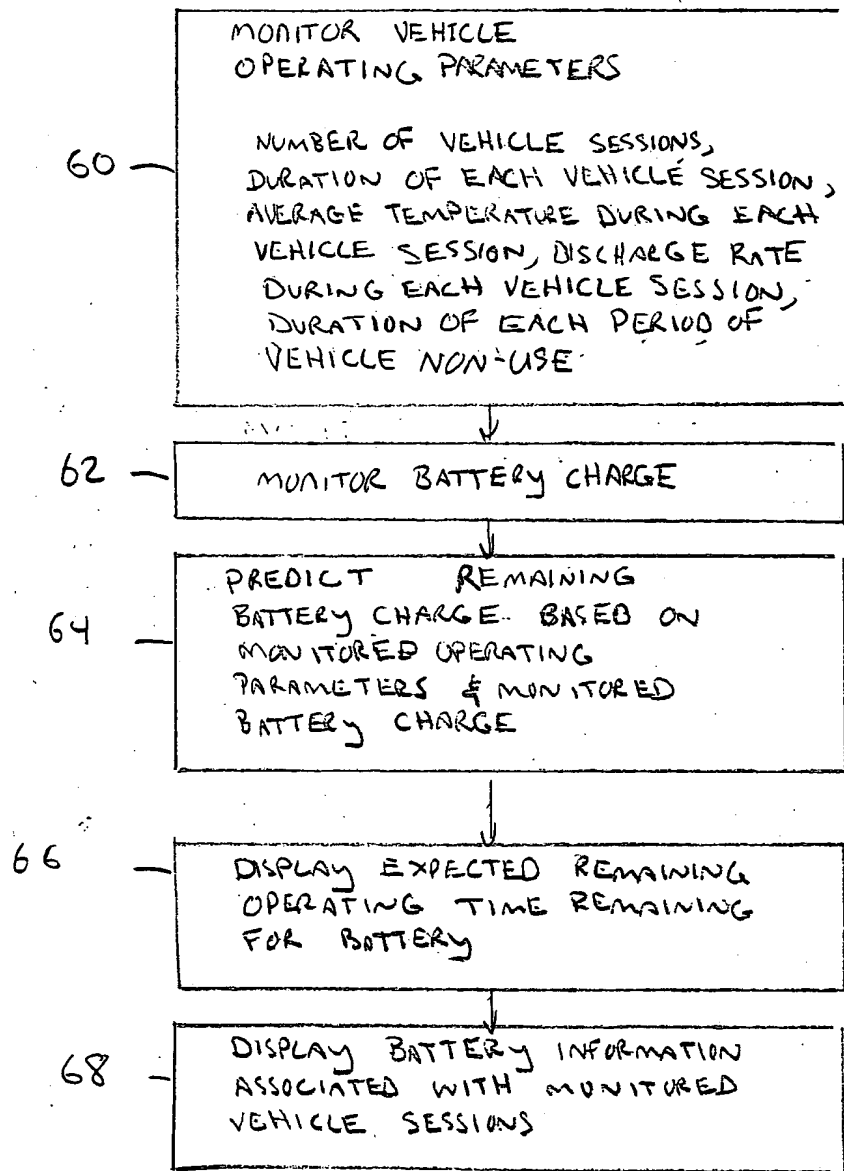 MONITOR VEHICLE
OPERATING PARAMETERS
60
NUMBER OF VEHICLE SESSIONS,
DURATION OF EACH VEHICLE SESSION,
AVERAGE TEMPERATURE DURING EACH
VEHICLE SESSION, DISCHARGE RATE
DURING EACH VEHICLE SESSION,
DURATION OF EACH PERIOD OF
VEHICLE NON-USE
62
MONITOR BATTERY CHARGE
64
PREDICT REMAINING
BATTERY CHARGE BASED ON
MONITORED OPERATING
PARAMETERS & MONITORED
BATTERY CHARGE
66
DISPLAY EXPECTED REMAINING
OPERATING TIME REMAINING
FOR BATTERY
68
DISPLAY BATTERY INFORMATION
ASSOCIATED WITH MONITORED
VEHICLE SESSIONS